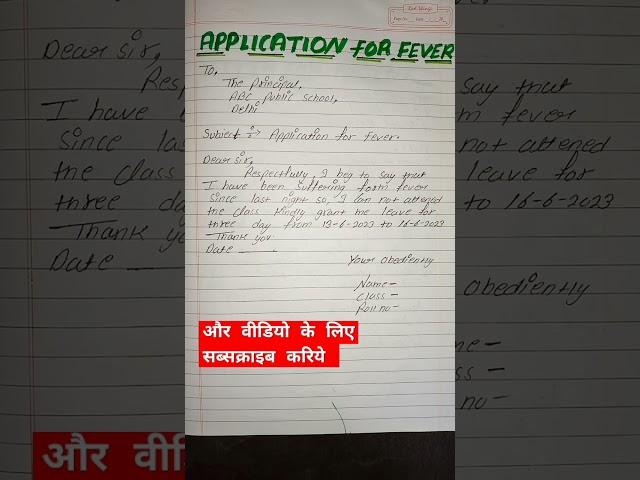 Red Wings
APPLICATION FOR FEVER
To,
The Principal,
ABC Public School,
Delhi
Subject :-> Application for Fever.
Dear sir,
Respectfully, I beg to say that
I have been suffering form fever
since last night so, I can not attened
the class kindly grant me leave for
three day from 13-6-2023 to 16-6-2023
Thank you
Date
Your obediently
Name-
Class-
Roll no-
और वीडियो के लिए
सब्सक्राइब करिये
Dear sir,
Resp
say that
I have b
orm fever
since las
not attened
the class
leave for
three da
to 16-6-2023
Thank you
Date
obediently
me-
ss-
no-
और वीडि